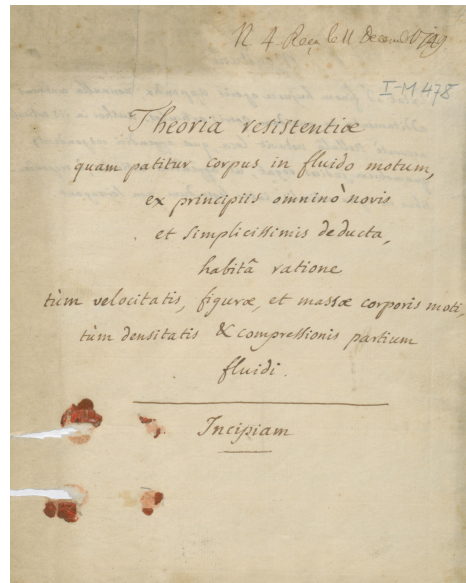 N 4 Reçu le 11 Decemb 1749
I-M 478
Theoria resistentiæ
quam patitur corpus in fluido motum,
ex principiis omninò novis
et simplicissimis deducta,
habitâ ratione
tùm velocitatis, figuræ, et massæ corporis moti,
tùm densitatis & compressionis partium
fluidi.
Incipiam